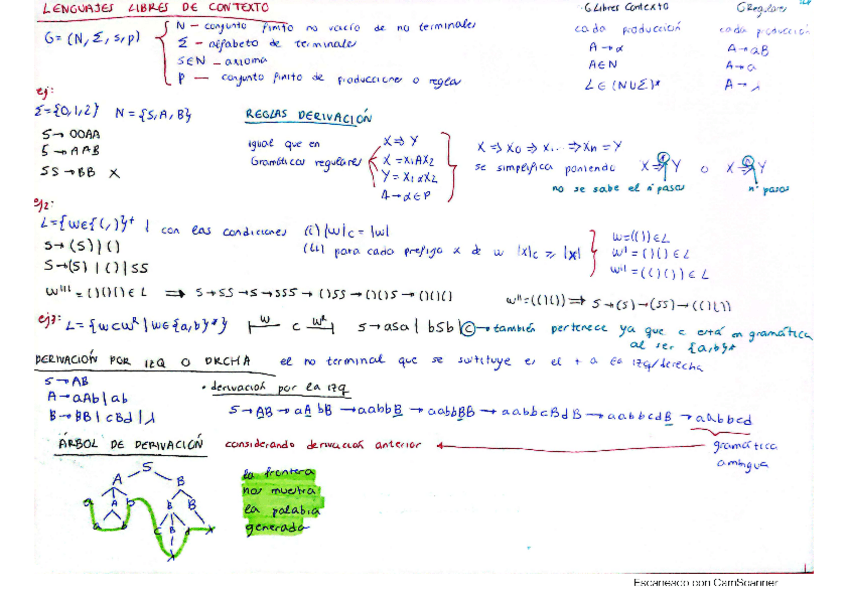 LENGUAJES LIBRES DE CONTEXTO
G = (N, Σ, S, P)
N — conjunto finito no vacío de no terminales
Σ — alfabeto de terminales
S∈N — axioma
P — conjunto finito de producciones o reglas
G Libres Contexto
cada producción
A→α
A∈N
G Regulares
cada producción
A→aB
A→a
A→λ
ej:
Σ={0,1,2} N={S,A,B}
S→00AA
S→AAB
SS→BB X
REGLAS DERIVACIÓN
igual que en
Gramáticas regulares
X⇒Y
X=X1AX2
Y=X1αX2
A→α∈P
X⇒X0⇒X1...⇒Xn=Y
se simplifica poniendo X⇒Y o X⇒Y
no se sabe el nº pasos
nº pasos
ej2:
L={w∈{(,)}+ | con las condiciones (i) |w|c = |w|
(ii) para cada prefijo x de w |x|c ≥ |x|
w=(())∈L
w'=()()∈L
w''=(()())∈L
S→(S)|()
S→(S)|()|SS
w'''=()()()∈L ⇒ S→SS→S→SSS→()SS→()()S→()()()
w''=(()()) ⇒ S→(S)→(SS)→(()())
ej3: L={wcwR|w∈{a,b}*} w c wR S→aSa|bSb|c→también pertenece ya que c está en gramática
al ser {a,b}*
DERIVACIÓN POR IZQ O DRCHA el no terminal que se sustituye es el + a la izq/derecha
S→AB
A→aAb|ab
B→BB|cBd|λ
· derivación por la izq
S→AB→aAbB→aabbB→aabbBB→aabbcBdB→aabbcdB→aabbcd
gramática
ambigua
ÁRBOL DE DERIVACIÓN considerando derivación anterior
S
A B
a A b B B
a b c B d λ
λ
la frontera
nos muestra
la palabra
generada
Escaneado con CamScanner